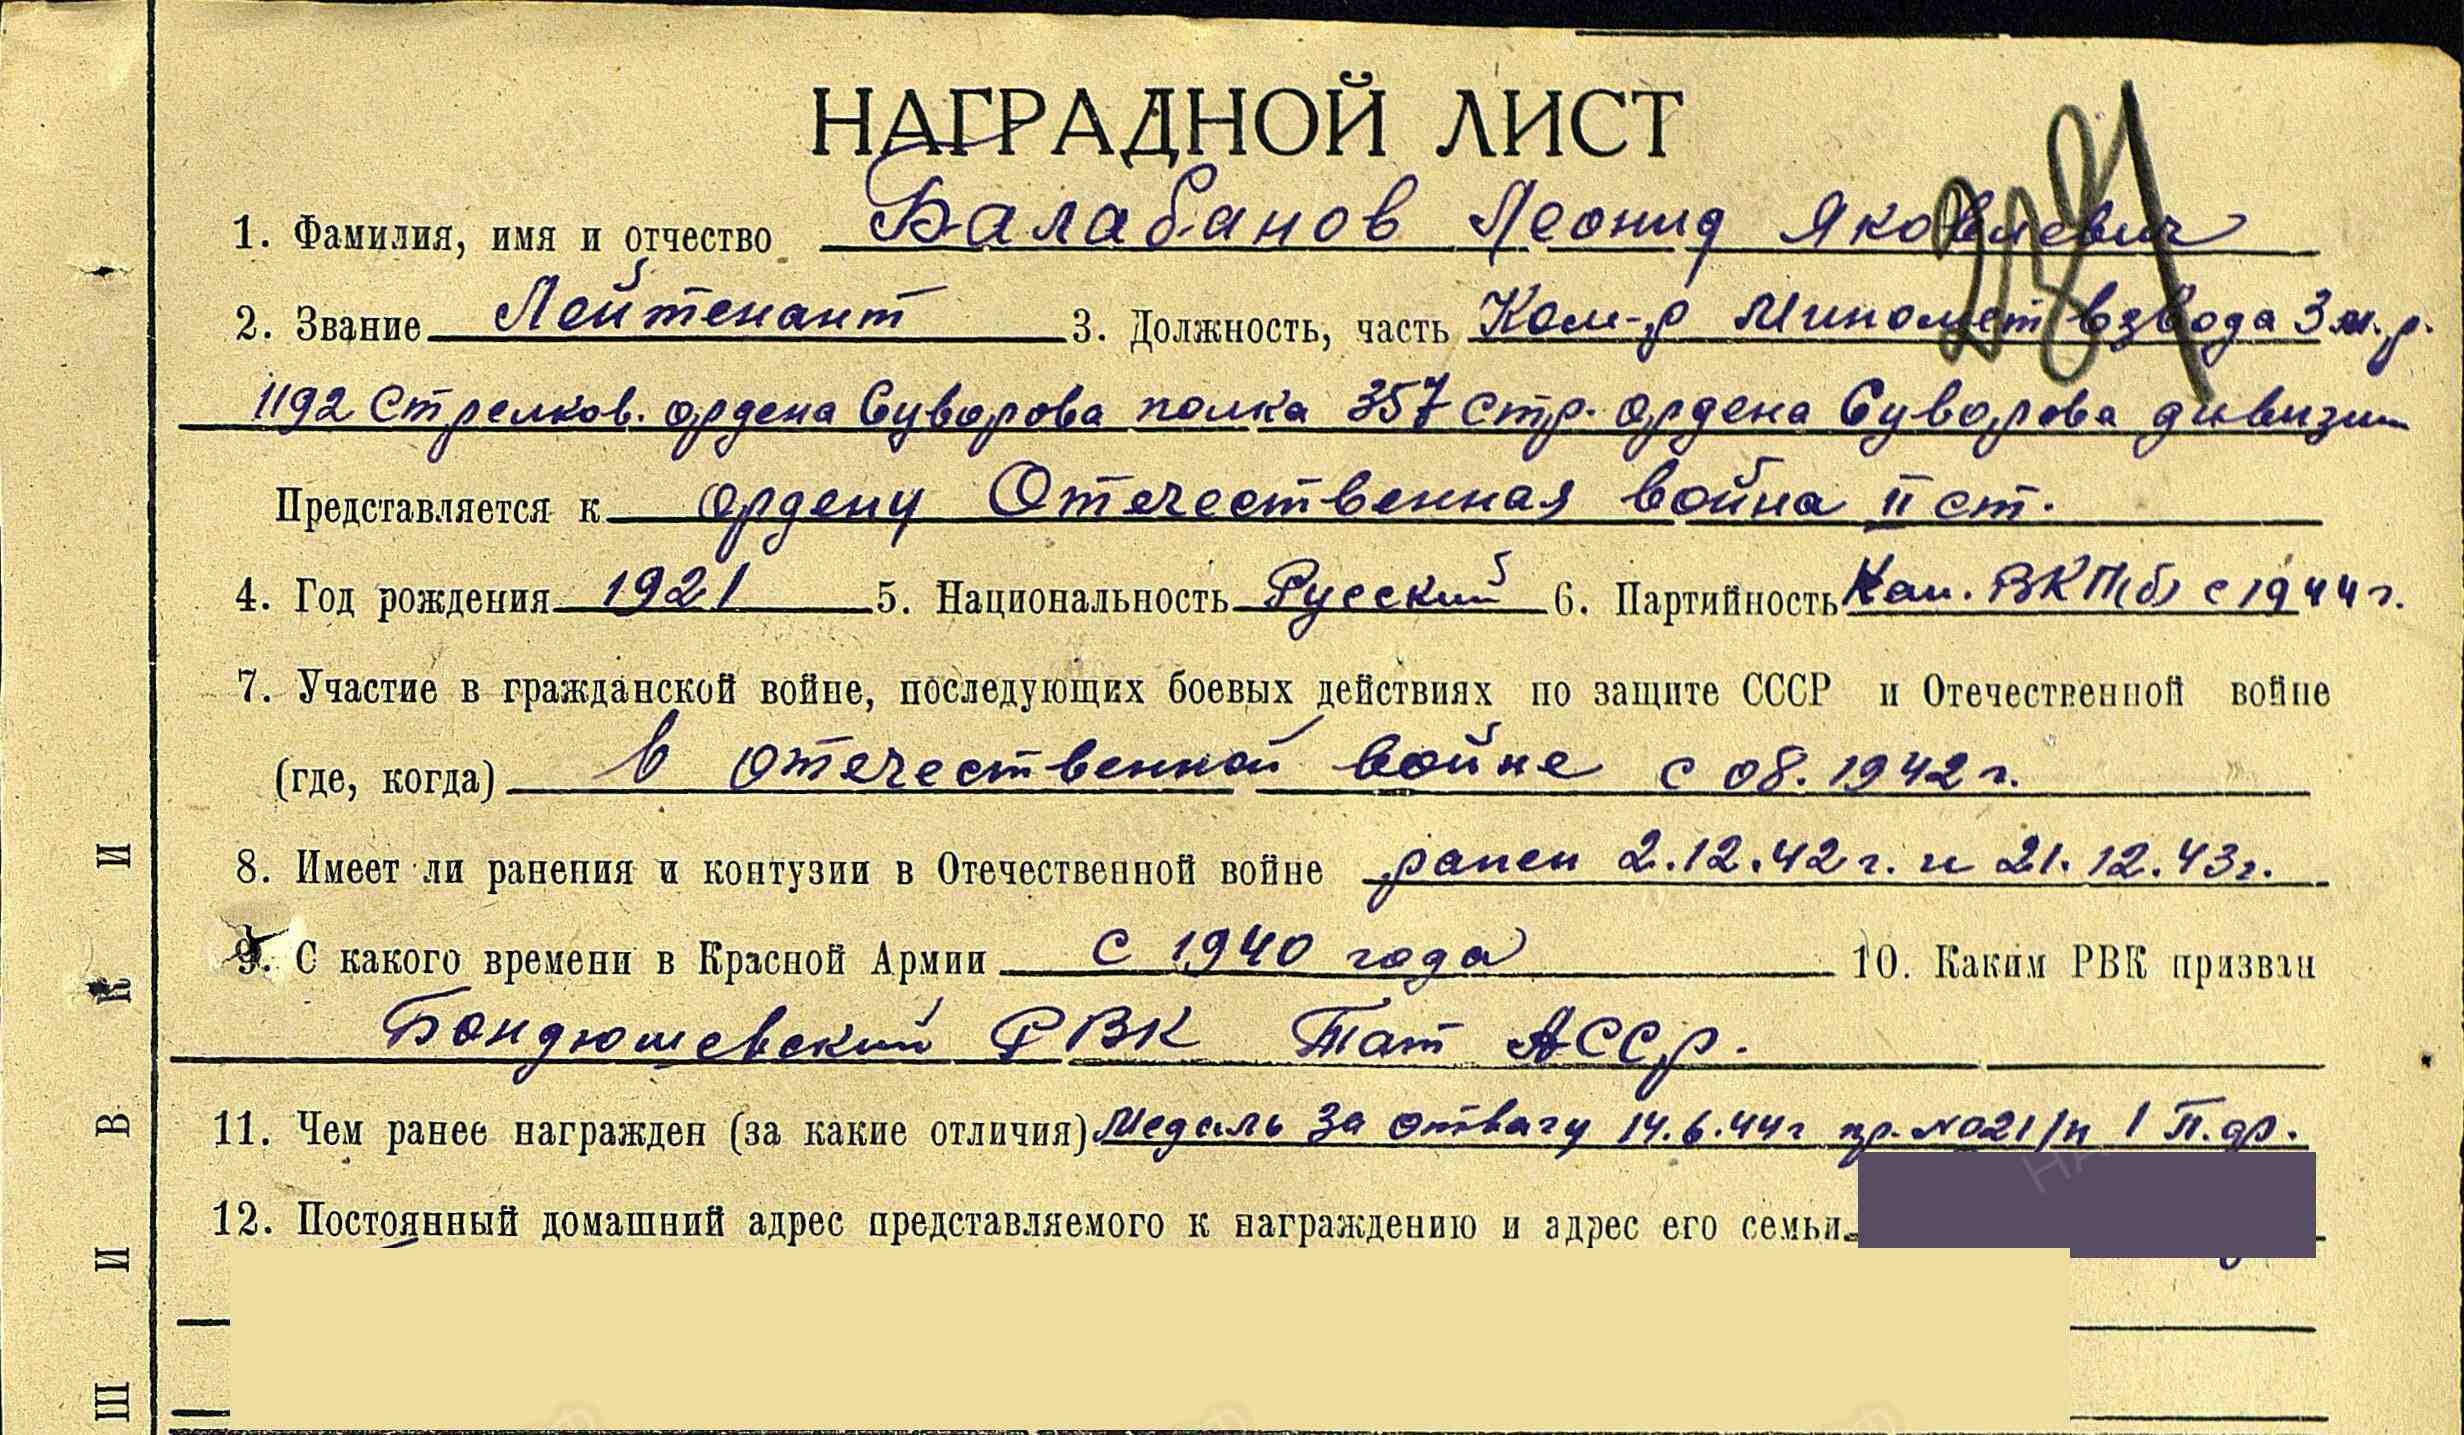 НАГРАДНОЙ ЛИСТ
1. Фамилия, имя и отчество Балабанов Леонид Яковлевич
2. Звание Лейтенант 3. Должность, часть Ком-р Миномет взвода 3 м.р.
1192 Стрелков. ордена Суворова полка 357 Стр. ордена Суворова дивизии
Представляется к ордену Отечественная война II ст.
4. Год рождения 1921 5. Национальность Русский 6. Партийность Кан. ВКП(б) с 1944 г.
7. Участие в гражданской войне, последующих боевых действиях по защите СССР и Отечественной войне
(где, когда) в отечественной войне с 08.1942 г.
8. Имеет ли ранения и контузии в Отечественной войне ранен 2.12.42 г. и 21.12.43 г.
9. С какого времени в Красной Армии с 1940 года 10. Каким РВК призван
Бондюжевский РВК Тат АССР.
11. Чем ранее награжден (за какие отличия) Медаль За отвагу 14.6.44 г пр. №021/н 1 П.
12. Постоянный домашний адрес представляемого к награждению и адрес его семьи
Ш И В К И